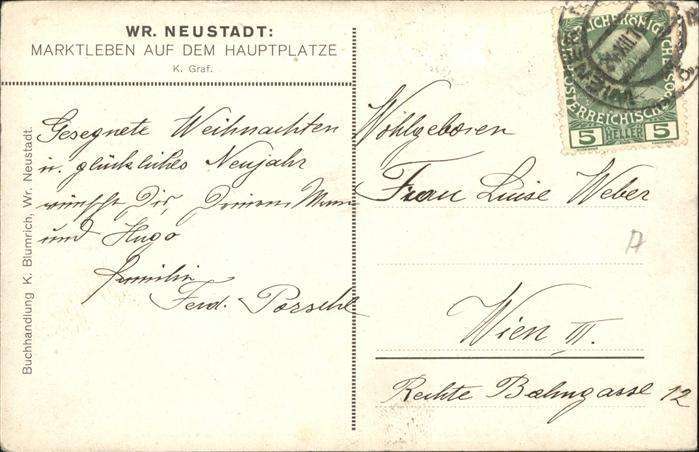 WR. NEUSTADT:
MARKTLEBEN AUF DEM HAUPTPLATZE
K. Graf.
Gesegnete Weihnachten
u. glückliches Neujahr
wünscht Dir, Deinem Mann
und Hugo
Familie
Ferd. Porsche
Buchhandlung K. Blumrich, Wr. Neustadt.
Wohlgeboren
Frau Luise Weber
Wien III.
Rechte Bahngasse 12
5 HELLER 5
WIEN